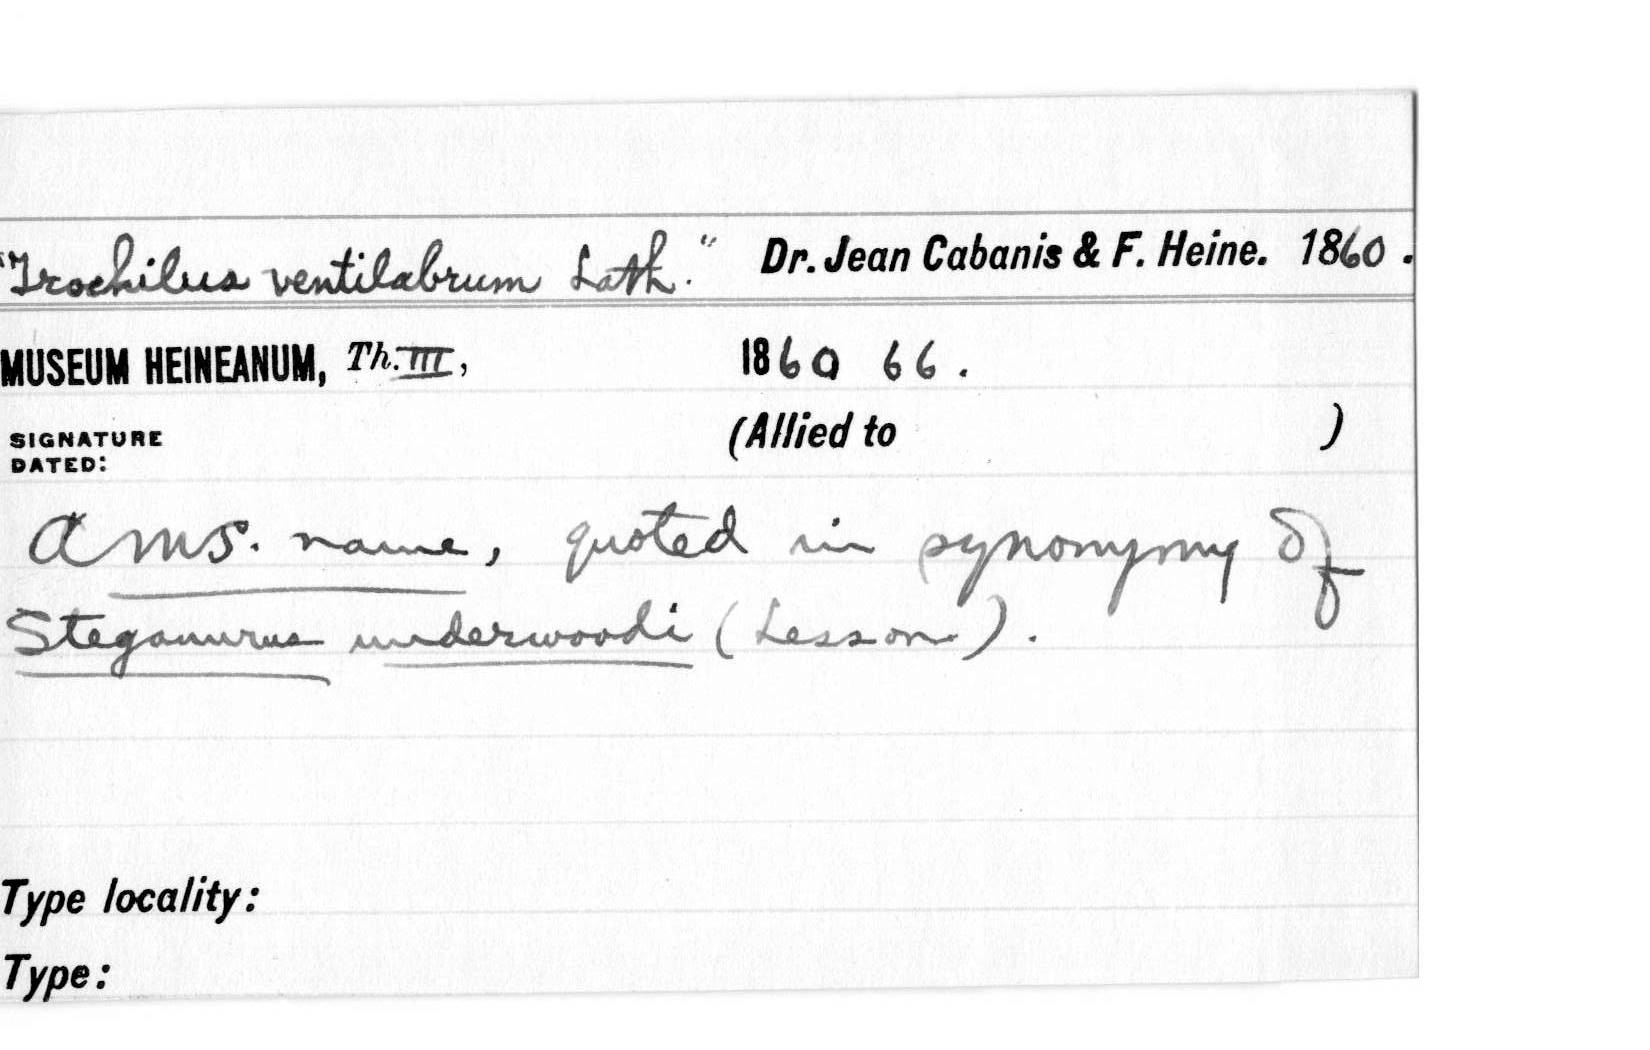 "Trochilus ventilabrum Lath." Dr. Jean Cabanis & F. Heine. 1860.
MUSEUM HEINEANUM, Th. III, 1860 66.
SIGNATURE DATED: (Allied to )
A MS. name, quoted in synonymy of
Steganurus underwoodi (Lesson).
Type locality:
Type: